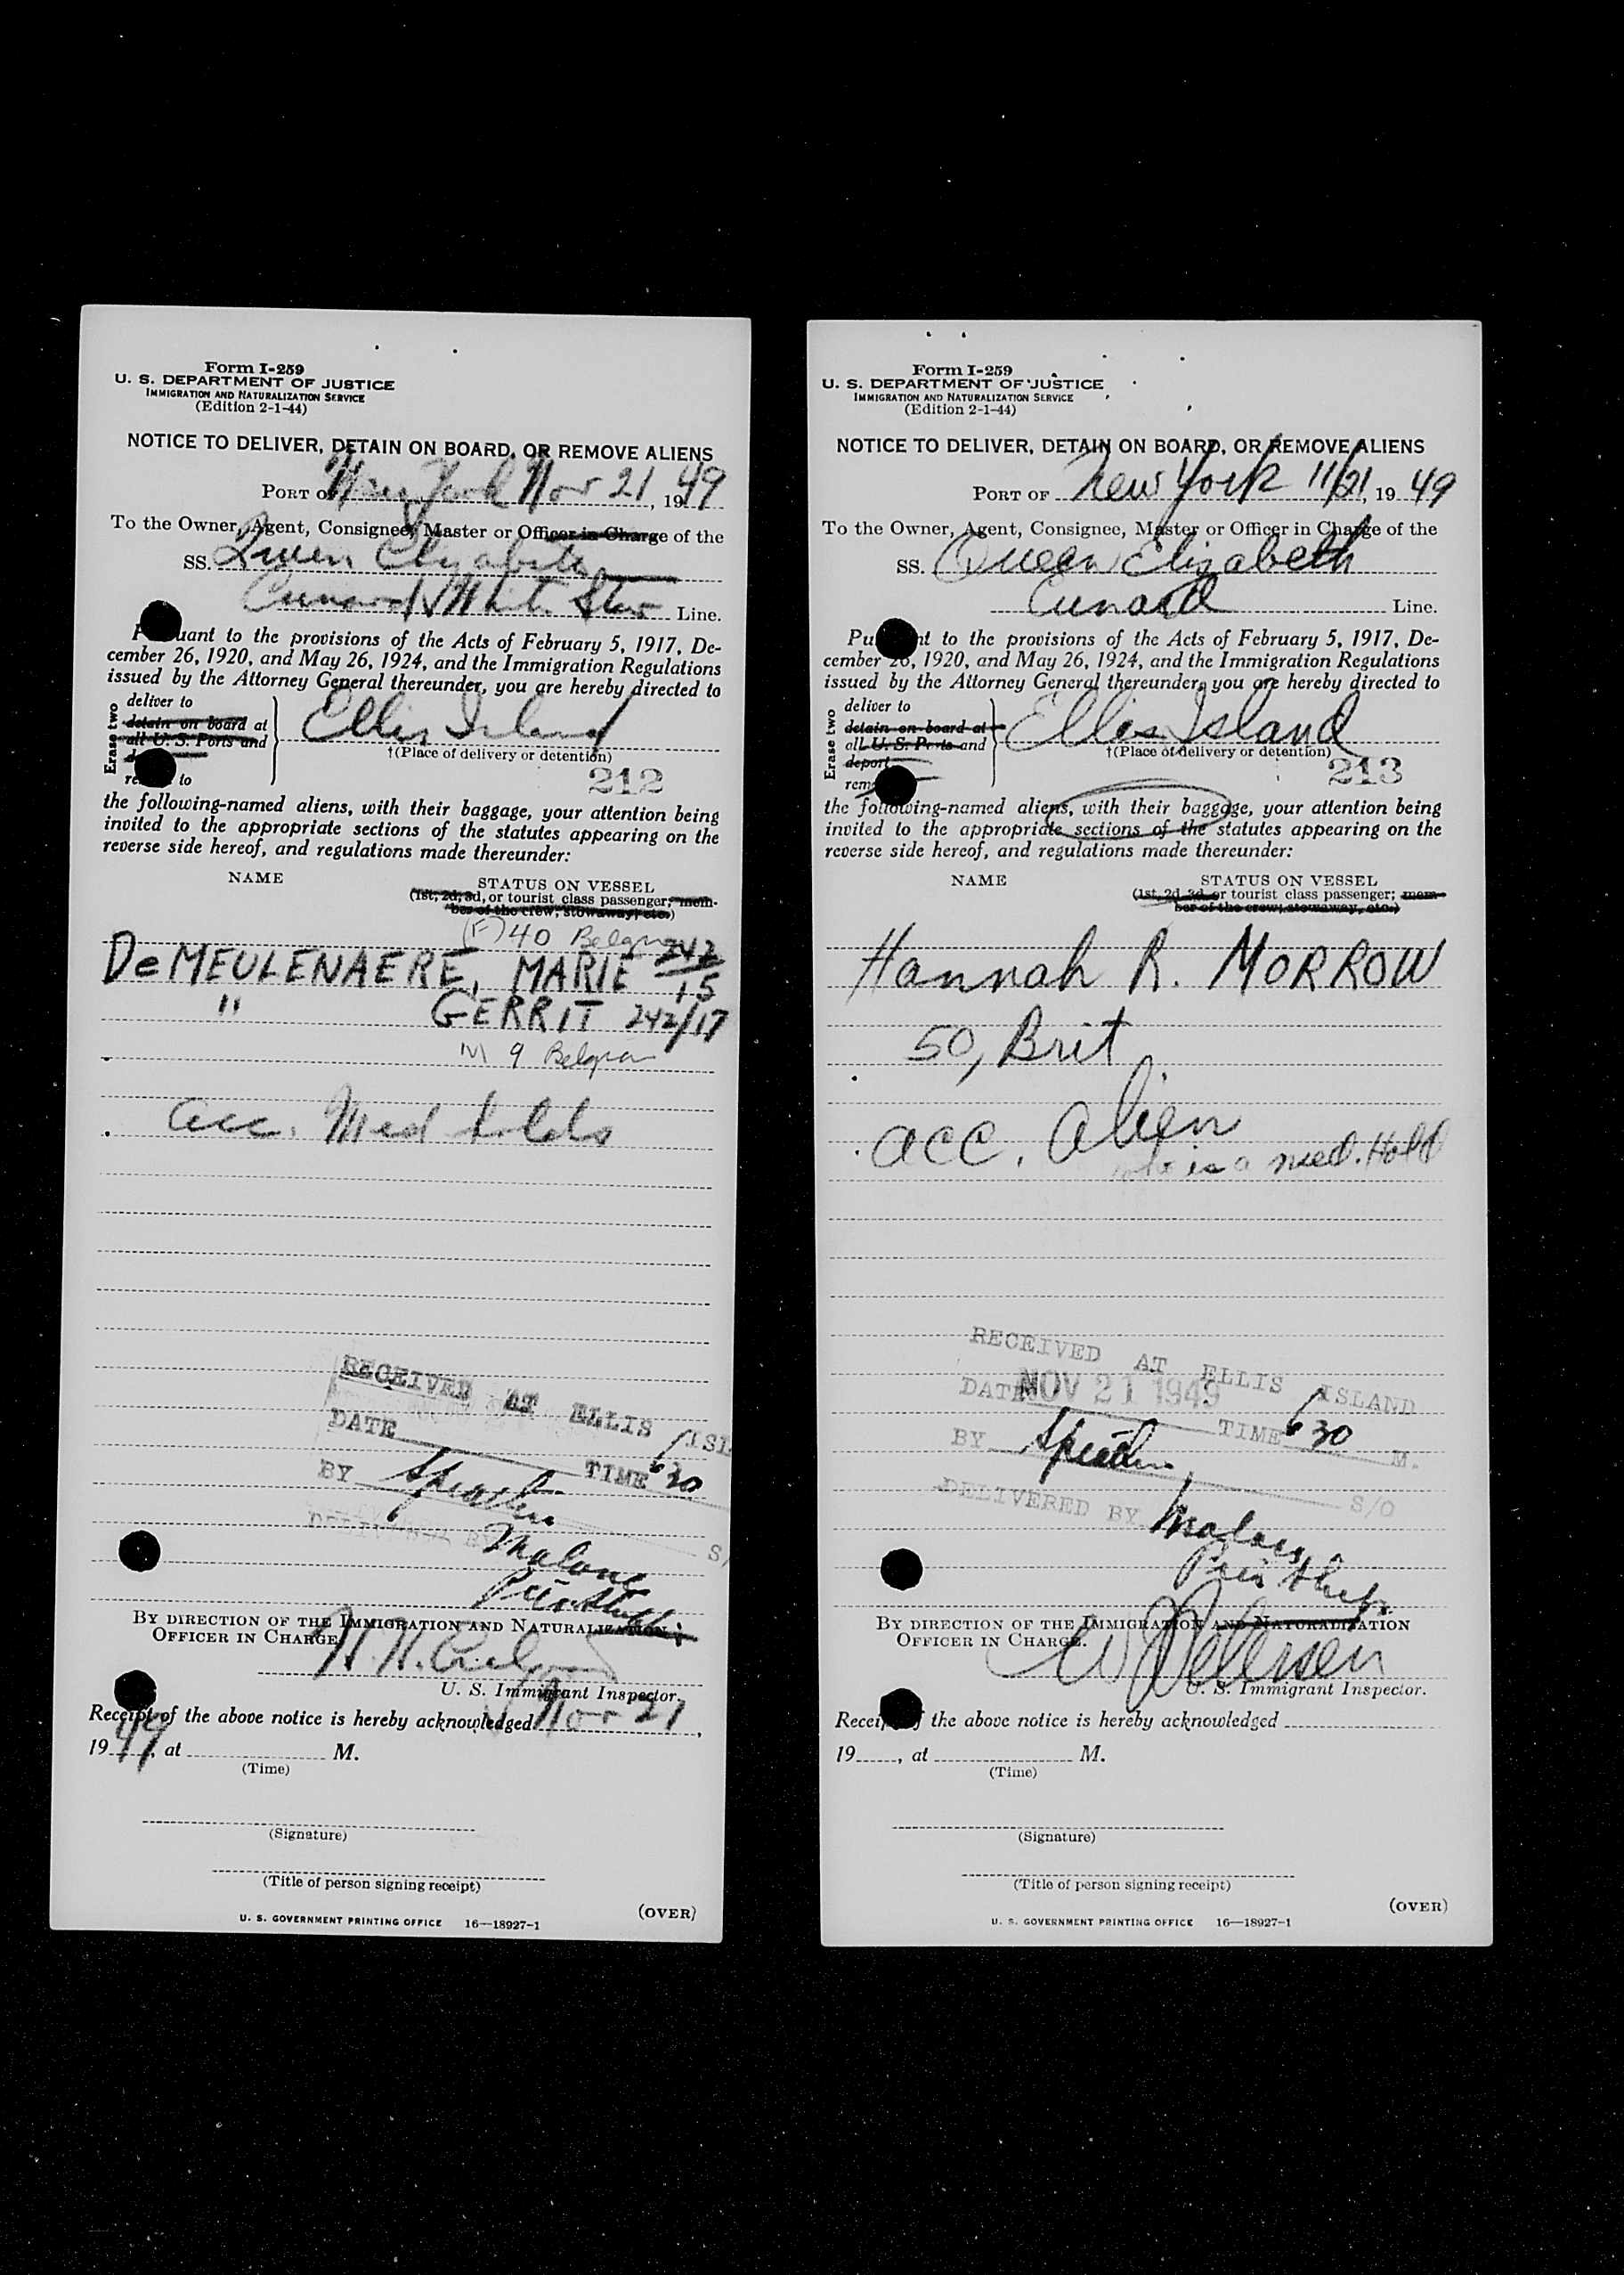 Form I-259
U. S. DEPARTMENT OF JUSTICE
IMMIGRATION AND NATURALIZATION SERVICE
(Edition 2-1-44)
NOTICE TO DELIVER, DETAIN ON BOARD, OR REMOVE ALIENS
PORT OF New York Nov 21, 1949
To the Owner, Agent, Consignee, Master or Officer in Charge of the
SS. Queen Elizabeth
Cunard White Star Line.
uant to the provisions of the Acts of February 5, 1917, De-
cember 26, 1920, and May 26, 1924, and the Immigration Regulations
issued by the Attorney General thereunder, you are hereby directed to
Erase two
deliver to
detain on board at
all U. S. Ports and
to
Ellis Island
†(Place of delivery or detention)
212
the following-named aliens, with their baggage, your attention being
invited to the appropriate sections of the statutes appearing on the
reverse side hereof, and regulations made thereunder:
NAME
STATUS ON VESSEL
(1st, 2d, 3d, or tourist class passenger; mem-
ber of the crew; stowaway; etc.)
(F) 40 Belgian
De MEULENAERE, MARIE 242/15
" GERRIT 242/17
M 9 Belgian
acc. Med holds
RECEIVED AT ELLIS ISL
DATE TIME 6 30
BY
DELIVERED BY Malone S/
BY DIRECTION OF THE IMMIGRATION AND NATURALIZATION
OFFICER IN CHARGE
U. S. Immigrant Inspector.
Receipt of the above notice is hereby acknowledged Nov 21,
1949, at M.
(Time)
(Signature)
(Title of person signing receipt)
(OVER)
U. S. GOVERNMENT PRINTING OFFICE 16—18927-1
Form I-259
U. S. DEPARTMENT OF JUSTICE
IMMIGRATION AND NATURALIZATION SERVICE
(Edition 2-1-44)
NOTICE TO DELIVER, DETAIN ON BOARD, OR REMOVE ALIENS
PORT OF New York 11/21, 1949
To the Owner, Agent, Consignee, Master or Officer in Charge of the
SS. Queen Elizabeth
Cunard Line.
Pu nt to the provisions of the Acts of February 5, 1917, De-
cember 26, 1920, and May 26, 1924, and the Immigration Regulations
issued by the Attorney General thereunder, you are hereby directed to
Erase two
deliver to
detain on board at
all U. S. Ports and
deport
rem
Ellis Island
†(Place of delivery or detention)
213
the following-named aliens, with their baggage, your attention being
invited to the appropriate sections of the statutes appearing on the
reverse side hereof, and regulations made thereunder:
NAME
STATUS ON VESSEL
(1st, 2d, 3d, or tourist class passenger; mem-
ber of the crew; stowaway, etc.)
Hannah R. MORROW
50, Brit
acc. alien
who is a med. Hold
RECEIVED AT ELLIS ISLAND
DATE NOV 21 1949 TIME 6 30 M.
BY S/O
DELIVERED BY Malone
BY DIRECTION OF THE IMMIGRATION AND NATURALIZATION
OFFICER IN CHARGE.
W Petersen
U. S. Immigrant Inspector.
Recei the above notice is hereby acknowledged
19 , at M.
(Time)
(Signature)
(Title of person signing receipt)
(OVER)
U. S. GOVERNMENT PRINTING OFFICE 16—18927-1